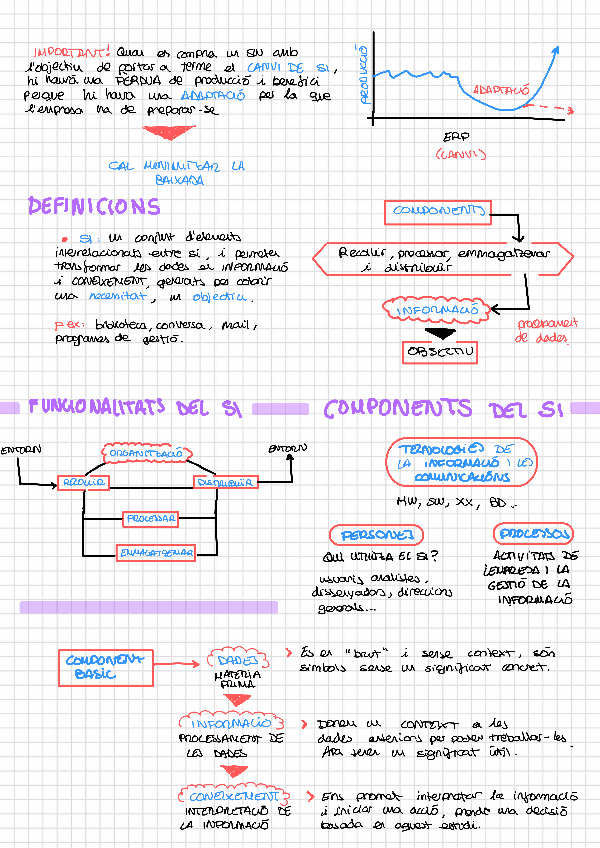 IMPORTANT! Quan es compra un SW amb
l'objectiu de portar a terme el CANVI DE SI,
hi haurà una PÈRDUA de producció i benefici
perquè hi haurà una ADAPTACIÓ per la que
l'empresa ha de preparar-se
CAL MINIMITZAR LA
BAIXADA
PRODUCCIÓ
ADAPTACIÓ
ERP
(CANVI)
DEFINICIONS
SI: un conjunt d'elements
interrelacionats entre si, i permeten
transformar les dades en INFORMACIÓ
i CONEIXEMENT, generats per cobrir
una necessitat, un objectiu.
p ex: biblioteca, conversa, mail,
programes de gestió.
COMPONENTS
Recollir, processar, emmagatzemar
i distribuir
INFORMACIÓ
processament
de dades
OBJECTIU
FUNCIONALITATS DEL SI
ENTORN
ORGANITZACIÓ
ENTORN
RECOLLIR
DISTRIBUIR
PROCESSAR
EMMAGATZEMAR
COMPONENTS DEL SI
TECNOLOGIES DE
LA INFORMACIÓ I LES
COMUNICACIONS
HW, SW, XX, BD...
PERSONES
QUI UTILITZA EL SI?
usuaris analistes,
dissenyadors, direccions
generals...
PROCESSOS
ACTIVITATS DE
L'EMPRESA I LA
GESTIÓ DE LA
INFORMACIÓ
COMPONENT
BÀSIC
DADES
MATÈRIA
PRIMA
És en "brut" i sense context, són
símbols sense un significat concret.
INFORMACIÓ
PROCESSAMENT DE
LES DADES
Donem un CONTEXT a les
dades anteriors per poder treballar-les.
Ara tenen un significat útil.
CONEIXEMENT
INTERPRETACIÓ DE
LA INFORMACIÓ
Ens permet interpretar la informació
i iniciar una acció, prendre una decisió
basada en aquest estudi.